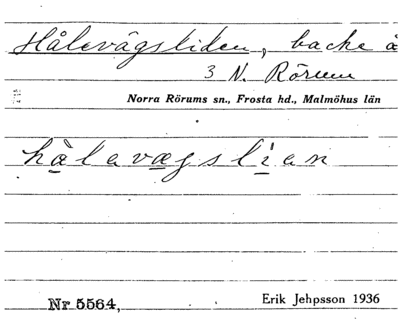 Hålevägsliden, backe å
3 N. Rörum
Norra Rörums sn., Frosta hd., Malmöhus län
hàlavægslían
Nr 5564, Erik Jehpsson 1936